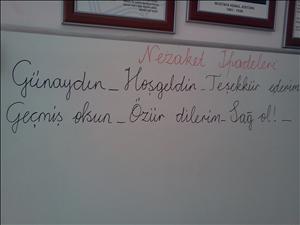 Nezaket İfadeleri
Günaydın_ Hoşgeldin_Teşekkür ederim
Geçmiş olsun_ Özür dilerim_Sağ ol!_